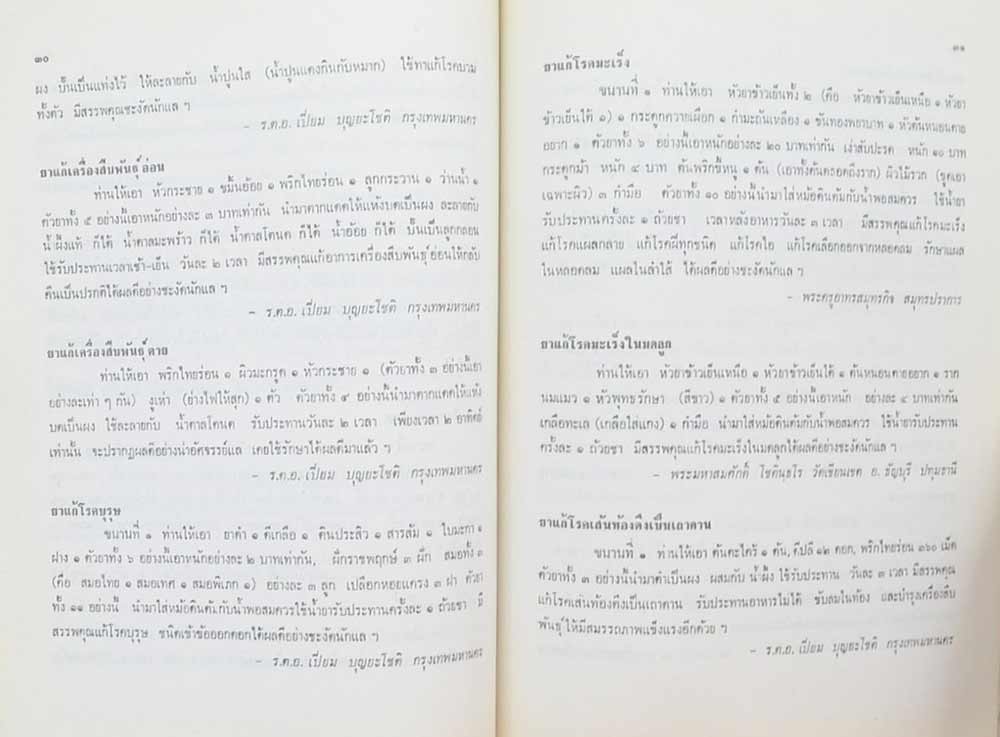 ๓๐
ผง ปั้นเป็นแท่งไว้ ให้ละลายกับ น้ำปูนใส (น้ำปูนแดงกินกับหมาก) ใช้ทาแก้โรคบวม
ทั้งตัว มีสรรพคุณชะงัดนักแล ฯ
- ร.ต.อ. เปี่ยม บุญยะโชติ กรุงเทพมหานคร
ยาแก้เครื่องสืบพันธุ์อ่อน
ท่านให้เอา หัวกระชาย ๑ ขมิ้นอ้อย ๑ พริกไทยร่อน ๑ ลูกกระวาน ๑ ว่านน้ำ ๑
ตัวยาทั้ง ๕ อย่างนี้เอาหนักอย่างละ ๓ บาทเท่ากัน นำมาตากแดดให้แห้งบดเป็นผง ละลายกับ
น้ำผึ้งแท้ ก็ได้ น้ำตาลมะพร้าว ก็ได้ น้ำตาลโตนด ก็ได้ น้ำอ้อย ก็ได้ ปั้นเป็นลูกกลอน
ใช้รับประทานเวลาเช้า-เย็น วันละ ๒ เวลา มีสรรพคุณแก้อาการเครื่องสืบพันธุ์อ่อนให้กลับ
คืนเป็นปรกติได้ผลดีอย่างชะงัดนักแล ฯ
- ร.ต.อ. เปี่ยม บุญยะโชติ กรุงเทพมหานคร
ยาแก้เครื่องสืบพันธุ์ตาย
ท่านให้เอา พริกไทยร่อน ๑ ผิวมะกรูด ๑ หัวกระชาย ๑ (ตัวยาทั้ง ๓ อย่างนี้เอา
อย่างละเท่า ๆ กัน) งูเห่า (ย่างไฟให้สุก) ๑ ตัว ตัวยาทั้ง ๔ อย่างนี้นำมาตากแดดให้แห้ง
บดเป็นผง ใช้ละลายกับ น้ำตาลโตนด รับประทานวันละ ๒ เวลา เพียงเวลา ๒ อาทิตย์
เท่านั้น จะปรากฏผลดีอย่างน่าอัศจรรย์แล เคยใช้รักษาได้ผลดีมาแล้ว ฯ
- ร.ต.อ. เปี่ยม บุญยะโชติ กรุงเทพมหานคร
ยาแก้โรคบุรุษ
ขนานที่ ๑ ท่านให้เอา ยาดำ ๑ ดีเกลือ ๑ ดินประสิว ๑ สารส้ม ๑ ใบมะกา ๑
ฝาง ๑ ตัวยาทั้ง ๖ อย่างนี้เอาหนักอย่างละ ๒ บาทเท่ากัน, ฝักราชพฤกษ์ ๓ ฝัก สมอทั้ง ๓
(คือ สมอไทย ๑ สมอเทศ ๑ สมอพิเภก ๑) อย่างละ ๓ ลูก เปลือกหอยแครง ๓ ฝา ตัวยา
ทั้ง ๑๑ อย่างนี้ นำมาใส่หม้อดินต้มกับน้ำพอสมควรใช้น้ำยารับประทานครั้งละ ๑ ถ้วยชา มี
สรรพคุณแก้โรคบุรุษ ชนิดเข้าข้อออกดอกได้ผลดีอย่างชะงัดนักแล ฯ
- ร.ต.อ. เปี่ยม บุญยะโชติ กรุงเทพมหานคร
๓๑
ยาแก้โรคมะเร็ง
ขนานที่ ๑ ท่านให้เอา หัวยาข้าวเย็นทั้ง ๒ (คือ หัวยาข้าวเย็นเหนือ ๑ หัวยา
ข้าวเย็นใต้ ๑) ๑ กระดูกควายเผือก ๑ กำมะถันเหลือง ๑ ขันทองพยาบาท ๑ หัวต้นหนอนตาย
อยาก ๑ ตัวยาทั้ง ๖ อย่างนี้เอาหนักอย่างละ ๒๐ บาทเท่ากัน เหง้าสับปะรด หนัก ๑๐ บาท
กระดูกม้า หนัก ๔ บาท ต้นพริกขี้หนู ๑ ต้น (เอาทั้งต้นตลอดถึงราก) ผิวไม้รวก (ขูดเอา
เฉพาะผิว) ๓ กำมือ ตัวยาทั้ง ๑๐ อย่างนี้นำมาใส่หม้อดินต้มกับน้ำพอสมควร ใช้น้ำยา
รับประทานครั้งละ ๑ ถ้วยชา เวลาหลังอาหารวันละ ๓ เวลา มีสรรพคุณแก้โรคมะเร็ง
แก้โรคแผลกลาย แก้โรคฝีทุกชนิด แก้โรคไอ แก้โรคเลือกออกจากหลอดลม รักษาแผล
ในหลอดลม แผลในลำไส้ ได้ผลดีอย่างชะงัดนักแล ฯ
- พระครูอาทรสมุทรกิจ สมุทรปราการ
ยาแก้โรคมะเร็งในมดลูก
ท่านให้เอา หัวยาข้าวเย็นเหนือ ๑ หัวยาข้าวเย็นใต้ ๑ ต้นหนอนตายอยาก ๑ ราก
นมแมว ๑ หัวพุทธรักษา (สีขาว) ๑ ตัวยาทั้ง ๕ อย่างนี้เอาหนัก อย่างละ ๔ บาทเท่ากัน
เกลือทะเล (เกลือใส่แกง) ๑ กำมือ นำมาใส่หม้อดินต้มกับน้ำพอสมควร ใช้น้ำยารับประทาน
ครั้งละ ๑ ถ้วยชา มีสรรพคุณแก้โรคมะเร็งในมดลูกได้ผลดีอย่างชะงัดนักแล ฯ
- พระมหาสมศักดิ์ โชตินฺธโร วัดเขียนเขต อ. ธัญบุรี ปทุมธานี
ยาแก้โรคเส้นท้องตึงเป็นเถาดาน
ขนานที่ ๑ ท่านให้เอา ต้นตะไคร้ ๑ ต้น, ดีปลี ๑๒ ดอก, พริกไทยร่อน ๓๖๐ เม็ด
ตัวยาทั้ง ๓ อย่างนี้นำมาตำเป็นผง ผสมกับ น้ำผึ้ง ใช้รับประทาน วันละ ๓ เวลา มีสรรพคุณ
แก้โรคเส้นท้องตึงเป็นเถาดาน รับประทานอาหารไม่ได้ ขับลมในท้อง และบำรุงเครื่องสืบ
พันธุ์ ให้มีสมรรถภาพแข็งแรงอีกด้วย ฯ
- ร.ต.อ. เปี่ยม บุญยะโชติ กรุงเทพมหานคร